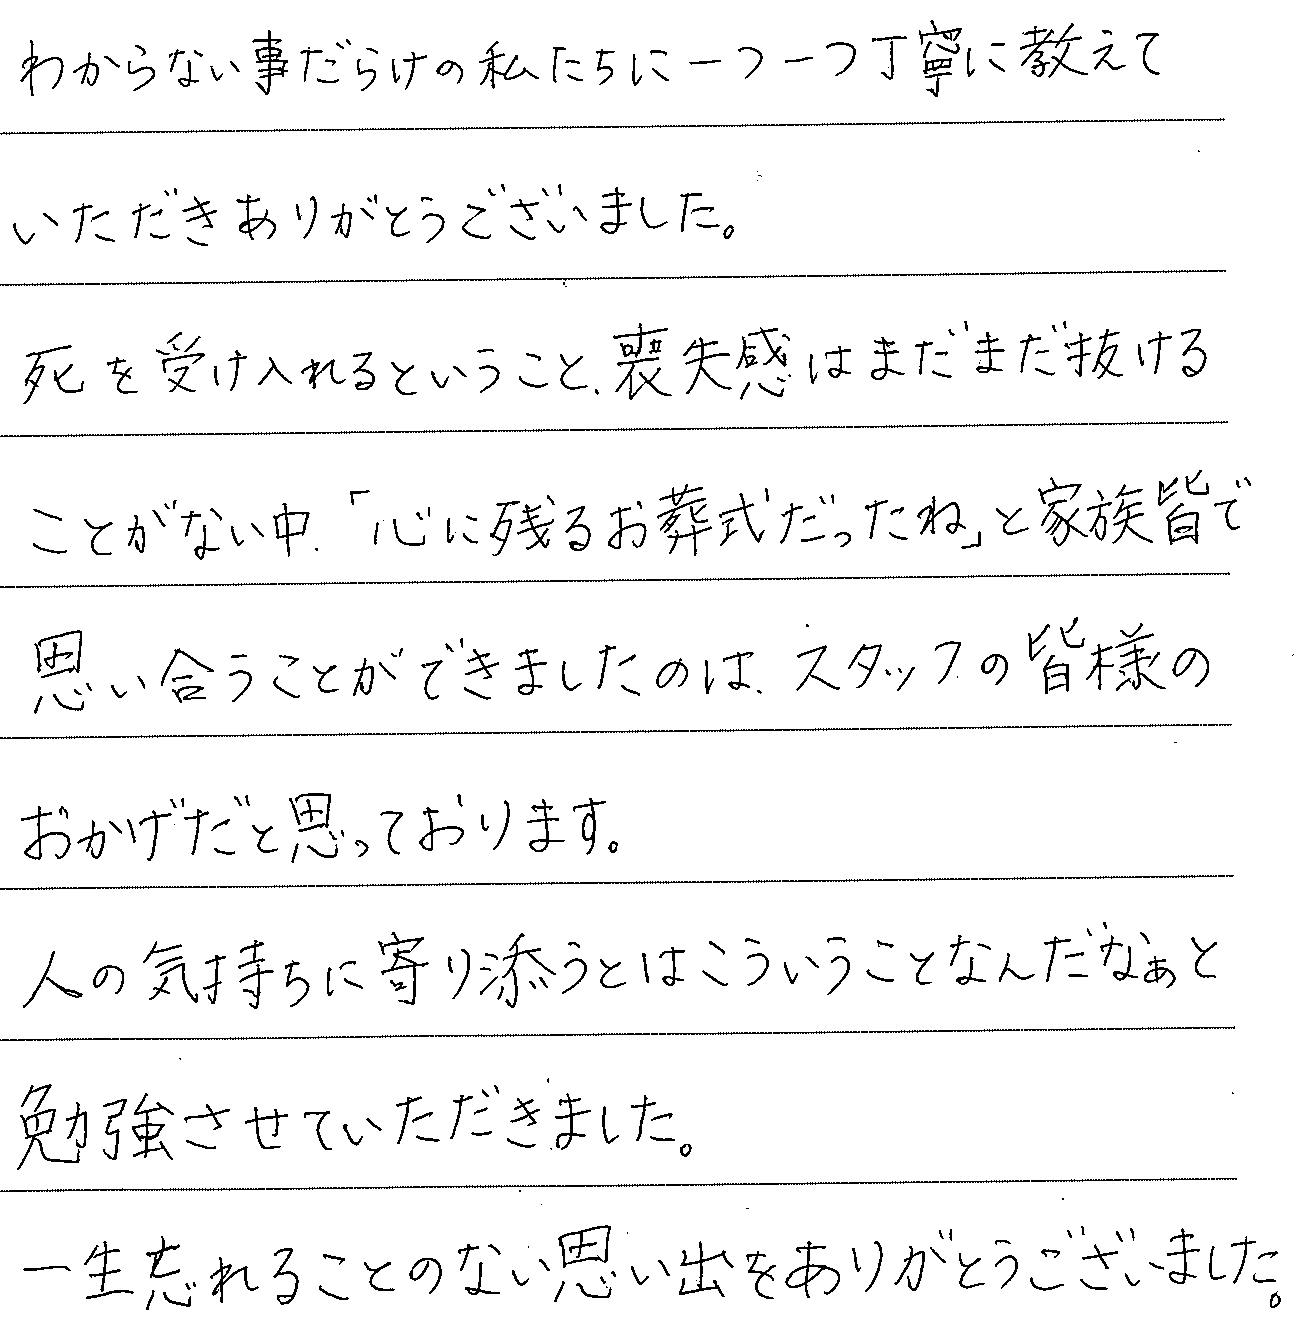 わからない事だらけの私たちに一つ一つ丁寧に教えて
いただきありがとうございました。
死を受け入れるということ、喪失感はまだまだ抜ける
ことがない中、「心に残るお葬式だったね」と家族皆で
思い合うことができましたのは、スタッフの皆様の
おかげだと思っております。
人の気持ちに寄り添うとはこういうことなんだなぁと
勉強させていただきました。
一生忘れることのない思い出をありがとうございました。